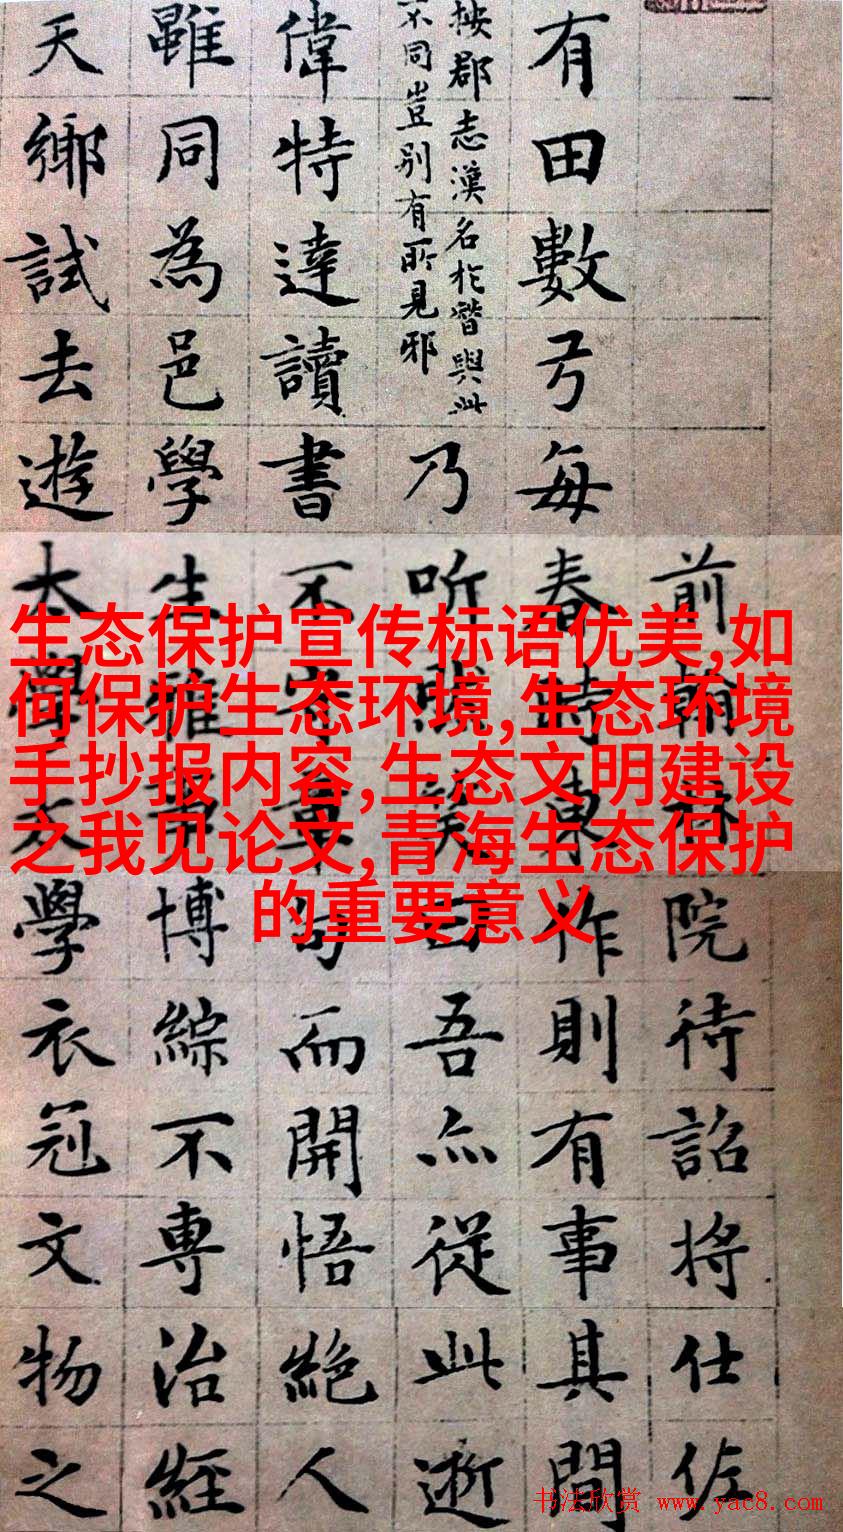 前翰林院待詔將仕佐
有田數弓每春時東作則有事其間
按郡志漢名於與此
不同豈别有所見邪
乃听然笑曰吾亦從此逝
偉特達讀書不章句而開悟絕人
雖同為邑學生雅事博綜不專治經
天鄉試去遊太學太學衣冠文物之
生态保护宣传标语优美,如
何保护生态环境,生态环境
手抄报内容,生态文明建设
之我见论文,青海生态保护
的重要意义
书法欣赏 www.yac8.com